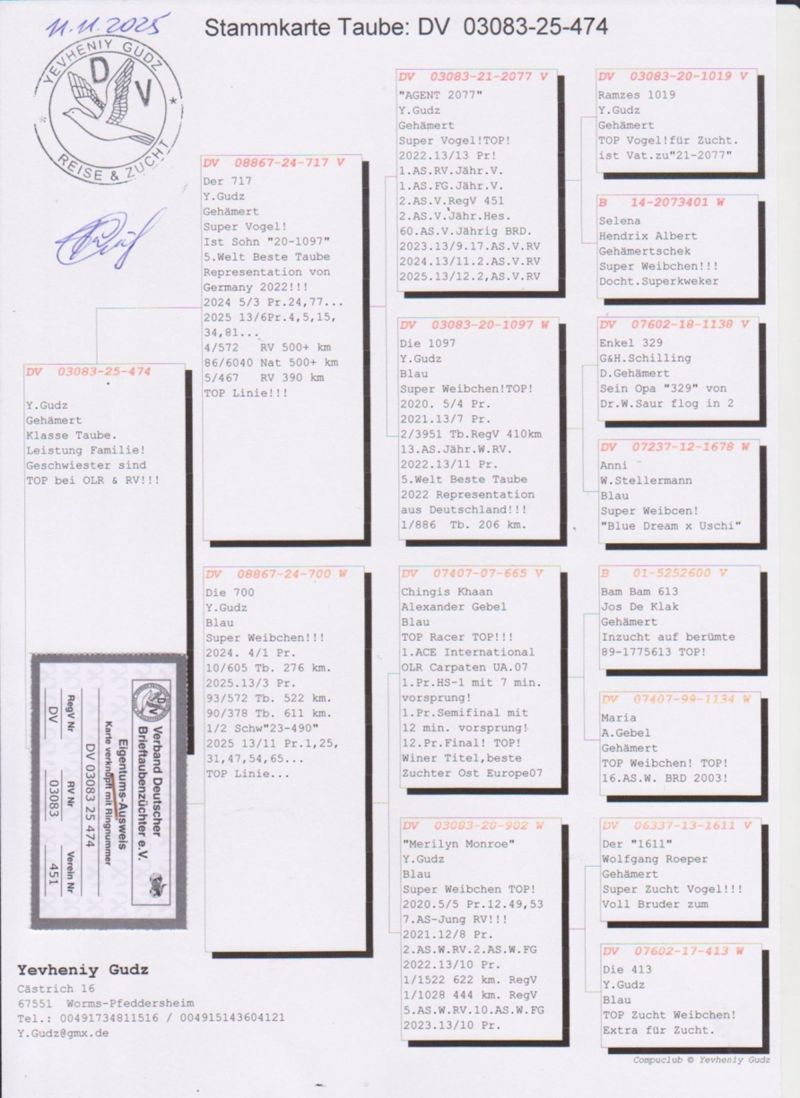 11.11.2025
Stammkarte Taube: DV 03083-25-474
YEVHENIY GUDZ
D V
REISE & ZUCHT
DV 03083-25-474
Y.Gudz
Gehämert
Klasse Taube.
Leistung Familie!
Geschwiester sind
TOP bei OLR & RV!!!
DV 08867-24-717 V
Der 717
Y.Gudz
Gehämert
Super Vogel!
Ist Sohn "20-1097"
5.Welt Beste Taube
Representation von
Germany 2022!!!
2024 5/3 Pr.24,77...
2025 13/6Pr.4,5,15,
34,81...
4/572 RV 500+ km
86/6040 Nat 500+ km
5/467 RV 390 km
TOP Linie!!!
DV 08867-24-700 W
Die 700
Y.Gudz
Blau
Super Weibchen!!!
2024. 4/1 Pr.
10/605 Tb. 276 km.
2025.13/3 Pr.
93/572 Tb. 522 km.
90/378 Tb. 611 km.
1/2 Schw"23-490"
2025 13/11 Pr.1,25,
31,47,54,65...
TOP Linie...
DV 03083-21-2077 V
"AGENT 2077"
Y.Gudz
Gehämert
Super Vogel!TOP!
2022.13/13 Pr!
1.AS.RV.Jähr.V.
1.AS.FG.Jähr.V.
2.AS.V.RegV 451
2.AS.V.Jähr.Hes.
60.AS.V.Jährig BRD.
2023.13/9.17.AS.V.RV
2024.13/11.2.AS.V.RV
2025.13/12.2,AS.V.RV
DV 03083-20-1097 W
Die 1097
Y.Gudz
Blau
Super Weibchen!TOP!
2020. 5/4 Pr.
2021.13/7 Pr.
2/3951 Tb.RegV 410km
13.AS.Jähr.W.RV.
2022.13/11 Pr.
5.Welt Beste Taube
2022 Representation
aus Deutschland!!!
1/886 Tb. 206 km.
DV 07407-07-665 V
Chingis Khaan
Alexander Gebel
Blau
TOP Racer TOP!!!
1.ACE International
OLR Carpaten UA.07
1.Pr.HS-1 mit 7 min.
vorsprung!
1.Pr.Semifinal mit
12 min. vorsprung!
12.Pr.Final! TOP!
Winer Titel,beste
Zuchter Ost Europe07
DV 03083-20-902 W
"Merilyn Monroe"
Y.Gudz
Blau
Super Weibchen TOP!
2020.5/5 Pr.12.49,53
7.AS-Jung RV!!!
2021.12/8 Pr.
2.AS.W.RV.2.AS.W.FG
2022.13/10 Pr.
1/1522 622 km. RegV
1/1028 444 km. RegV
5.AS.W.RV.10.AS.W.FG
2023.13/10 Pr.
DV 03083-20-1019 V
Ramzes 1019
Y.Gudz
Gehämert
TOP Vogel!für Zucht.
ist Vat.zu"21-2077"
B 14-2073401 W
Selena
Hendrix Albert
Gehämertschek
Super Weibchen!!!
Docht.Superkweker
DV 07602-18-1138 V
Enkel 329
G&H.Schilling
D.Gehämert
Sein Opa "329" von
Dr.W.Saur flog in 2
DV 07237-12-1678 W
Anni
W.Stellermann
Blau
Super Weibcen!
"Blue Dream x Uschi"
B 01-5252600 V
Bam Bam 613
Jos De Klak
Gehämert
Inzucht auf berümte
89-1775613 TOP!
DV 07407-99-1134 W
Maria
A.Gebel
Gehämert
TOP Weibchen! TOP!
16.AS.W. BRD 2003!
DV 06337-13-1611 V
Der "1611"
Wolfgang Roeper
Gehämert
Super Zucht Vogel!!!
Voll Bruder zum
DV 07602-17-413 W
Die 413
Y.Gudz
Blau
TOP Zucht Weibchen!
Extra für Zucht.
Verband Deutscher
Brieftaubenzüchter e.V.
Eigentums-Ausweis
Karte verknüpft mit Ringnummer
DV 03083 25 474
RegV Nr RV Nr Verein Nr
DV 03083 451
Yevheniy Gudz
Cästrich 16
67551 Worms-Pfeddersheim
Tel.: 00491734811516 / 004915143604121
Y.Gudz@gmx.de
Compuclub © Yevheniy Gudz